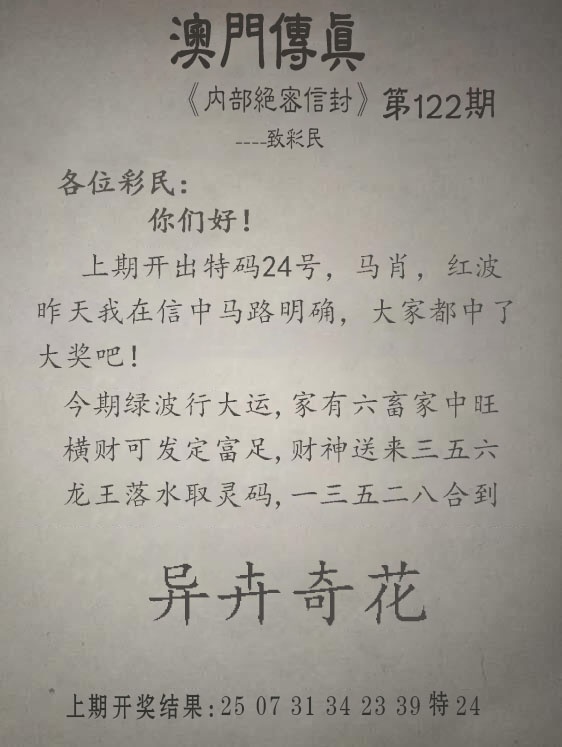 澳門傳眞
《内部絕密信封》第122期
----致彩民
各位彩民：
你们好！
上期开出特码24号，马肖，红波
昨天我在信中马路明确，大家都中了
大奖吧！
今期绿波行大运,家有六畜家中旺
横财可发定富足,财神送来三五六
龙王落水取灵码,一三五二八合到
异卉奇花
上期开奖结果:25 07 31 34 23 39 特 24